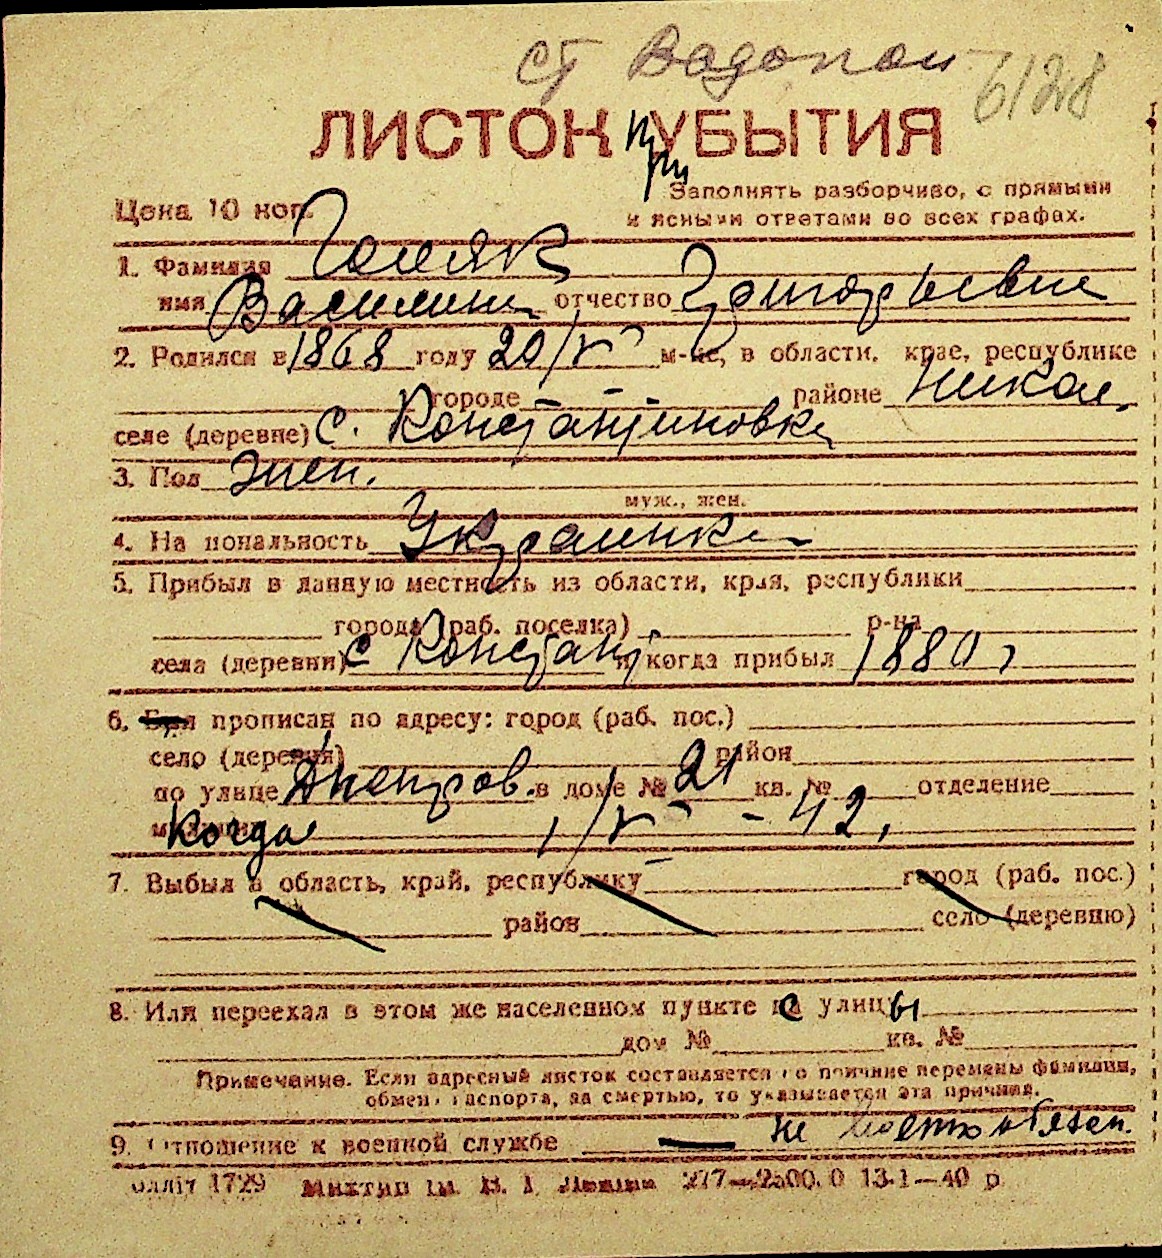 ст Водопой 6/28
ЛИСТОК при УБЫТИЯ
Цена 10 коп.
Заполнять разборчиво, с прямыми
и ясными ответами во всех графах.
1. Фамилия Голяк
имя Василина отчество Григорьевна
2. Родился в 1868 году 20/V м-це, в области, крае, республике
городе районе Никол.
селе (деревне) с. Константиновка
3. Пол жен.
муж., жен.
4. Национальность Украинка
5. Прибыл в данную местность из области, края, республики
города (раб. поселка) р-на
села (деревни) с Констант и когда прибыл 1880 г
6. прописан по адресу: город (раб. пос.)
село (деревня) район
по улице Днепров. в доме № 21 кв. № отделение
Когда 1/V - 42,
7. Выбыл в область, край, республику город (раб. пос.)
район село (деревню)
8. Или переехал в этом же населенном пункте с улицы
дом № кв. №
Примечание. Если адресный листок составляется по причине перемены фамилии,
обмена паспорта, за смертью, то указывается эта причина.
9. Отношение к военной службе — не военнообязан.
олліт 1729 277—2500.0 13-1—40 р